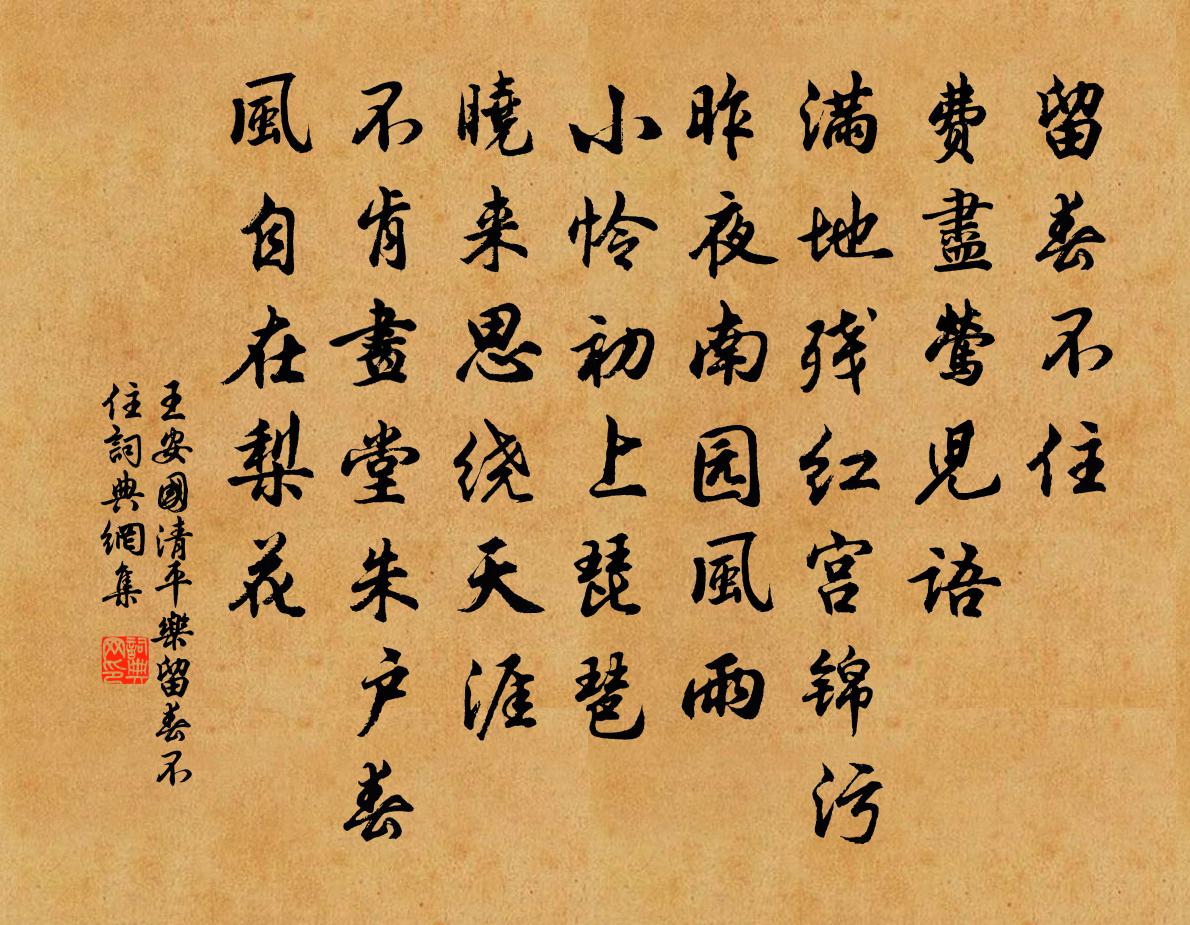 留春不住
費盡鶯兒語
滿地残红宫锦污
昨夜南园風雨
小怜初上琵琶
曉来思绕天涯
不肯畫堂朱户春
風自在梨花
王安國清平樂留春不
住詞典網集
詞典
网印